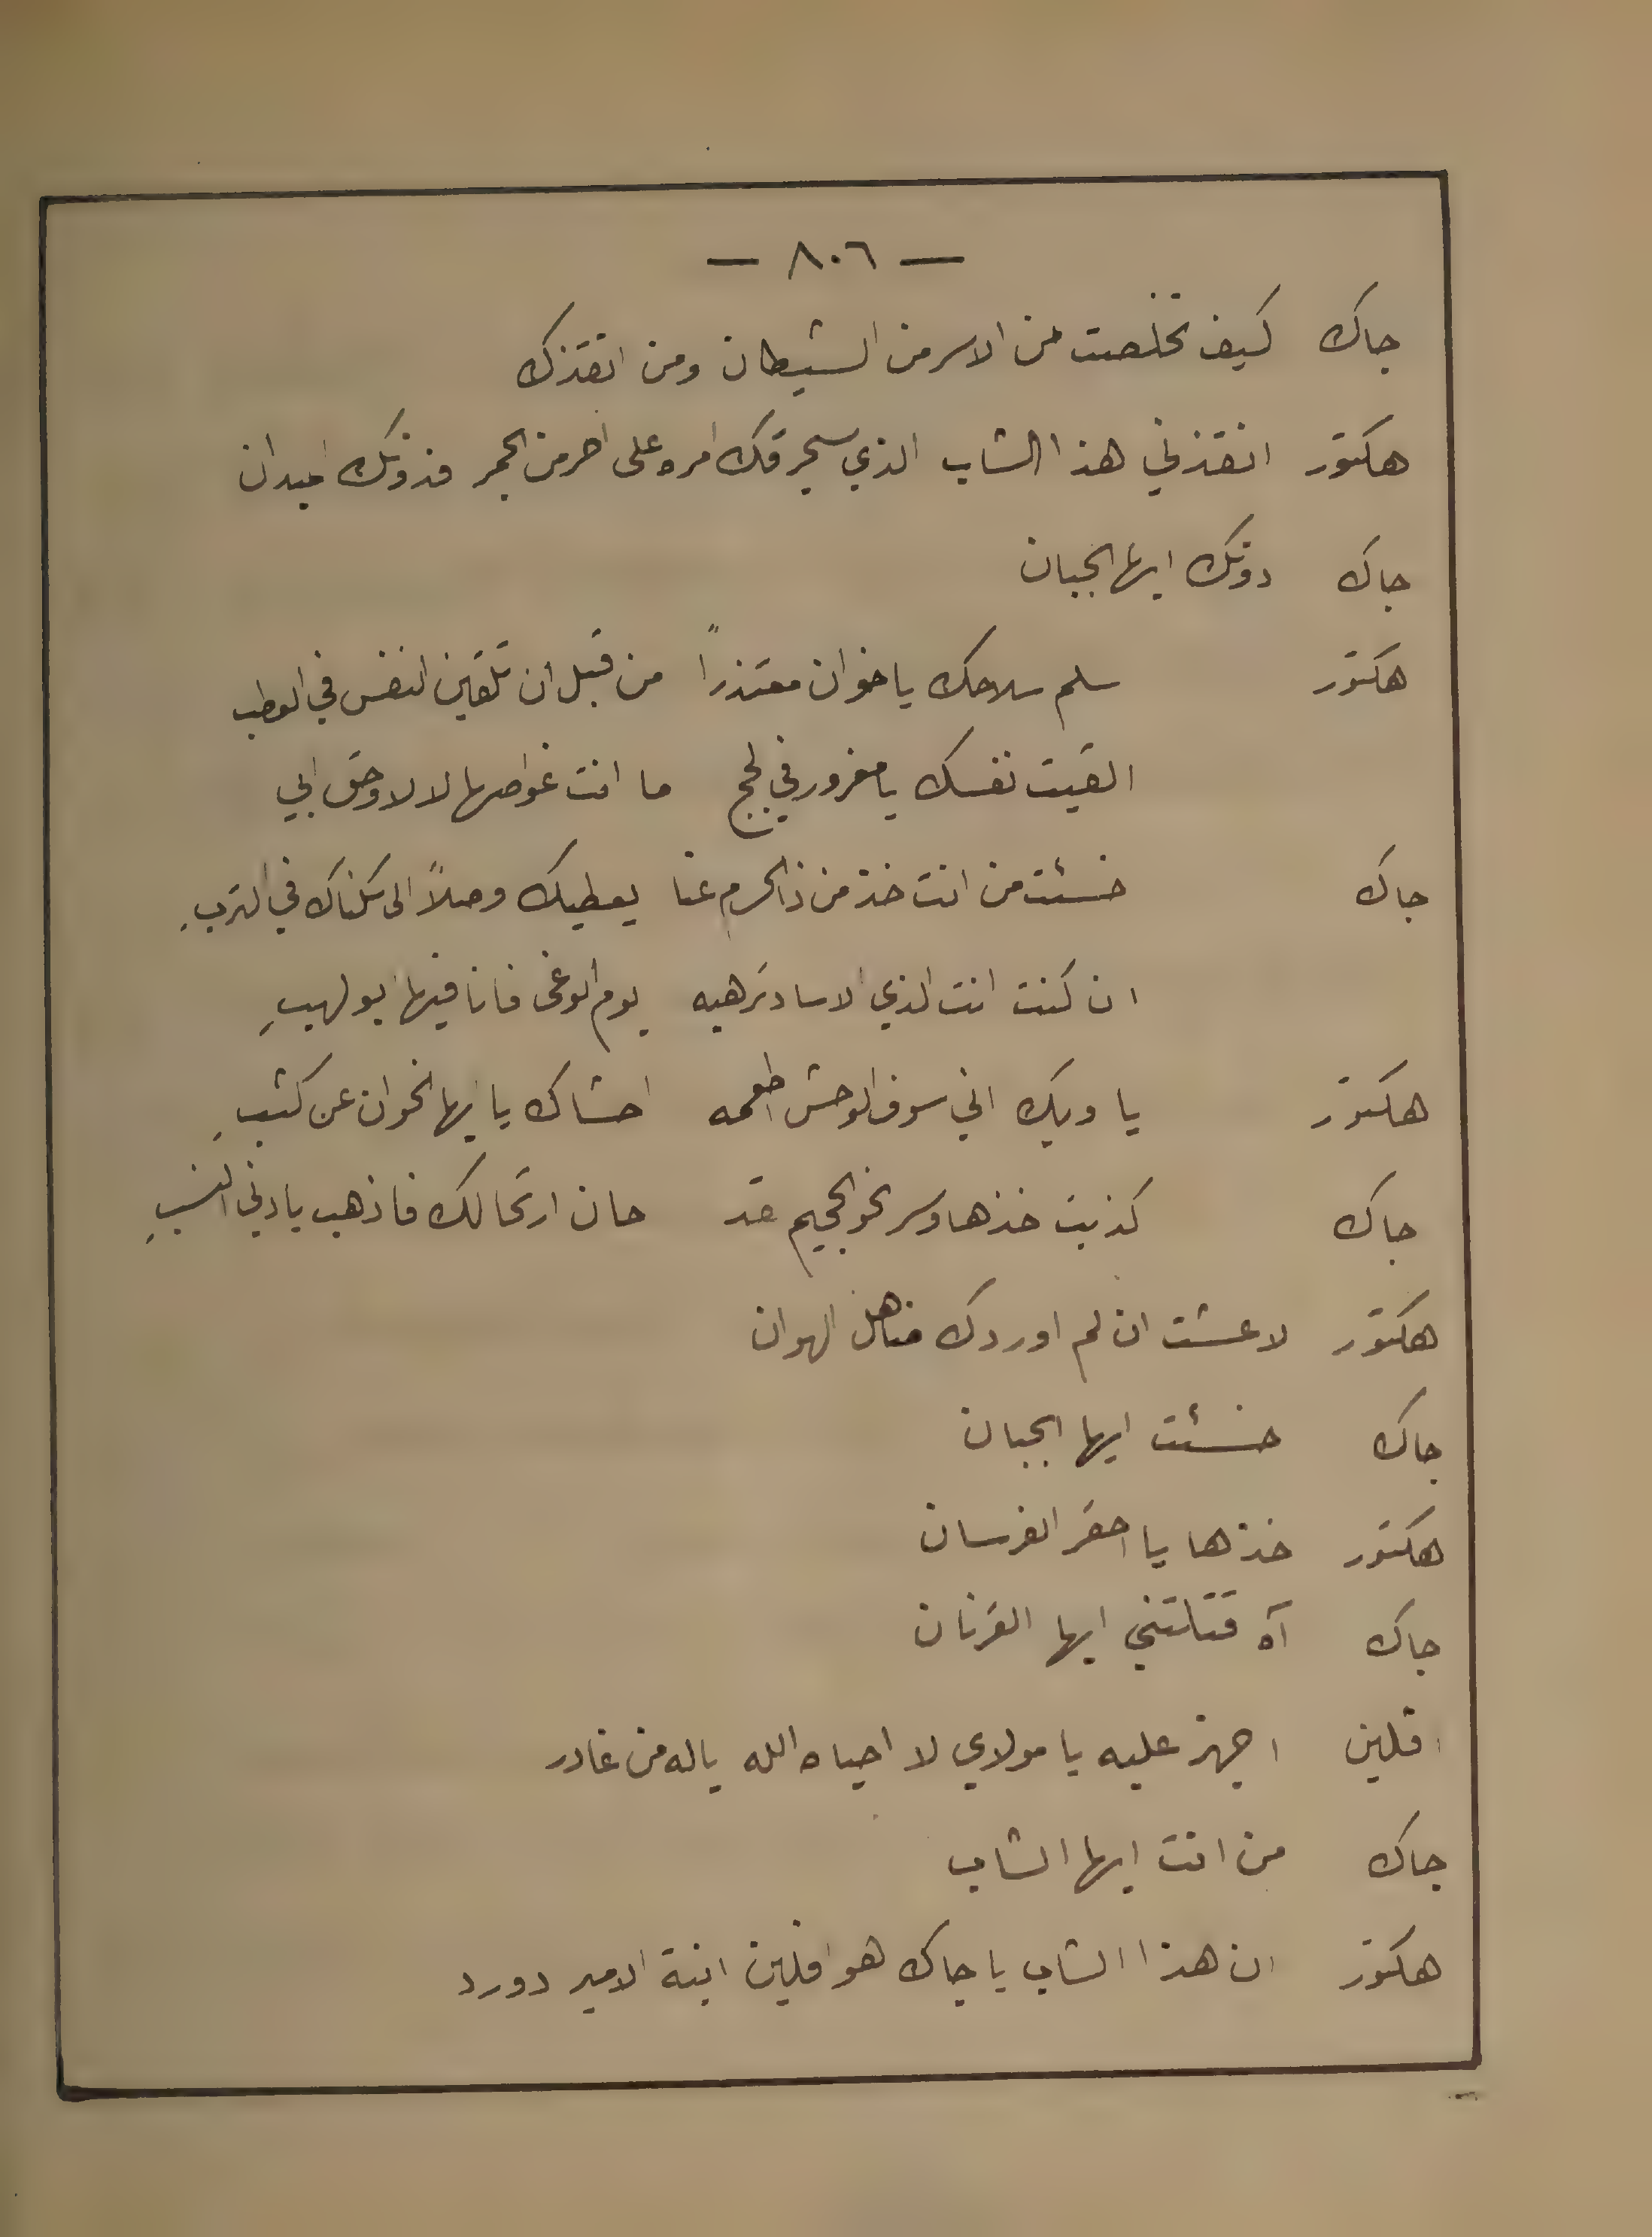 — ٨٠٦ —
جاك كيف تخلصت من الاسر من الشيطان ومن انقذك
هكتور انقذني هذا الشاب الذي سيحرقك امره على احر من الجمر فدونك الميدان
جاك دونك ايها الجبان
هكتور سلم سلاحك يا خوان معتذراً من قبل ان تلقين النفس في العطب
القيت نفسك يا مغرور في لجج ما انت غواصها لا لا وحق ابي
جاك خسئت من انت خذ من ذا لحرم عنا يعطيك وصلاً الى سكناك في التربِ
ان كنت انت الذي الاساد ترهبه يوم الوغى فانا فيها ابو لهبِ
هكتور يا ويك اني سوف الوحش اطعمه احشاك يا ايها الخوان عن كثبِ
جاك كذبت خذها وسر نحو الجحيم فقد حان ارتحالك فاذهب يا دني النسبِ
هكتور لا عشت ان لم اوردك مناهل الهوان
جاك خسئت ايها الجبان
هكتور خذها يا احقر الفرسان
جاك آه قتلتني ايها القرنان
افلين اجهز عليه يا مولاي لا احياه الله ياله من غادر
جاك من انت ايها الشاب
هكتور ان هذا الشاب يا جاك هو افلين ابنة الامير دورد